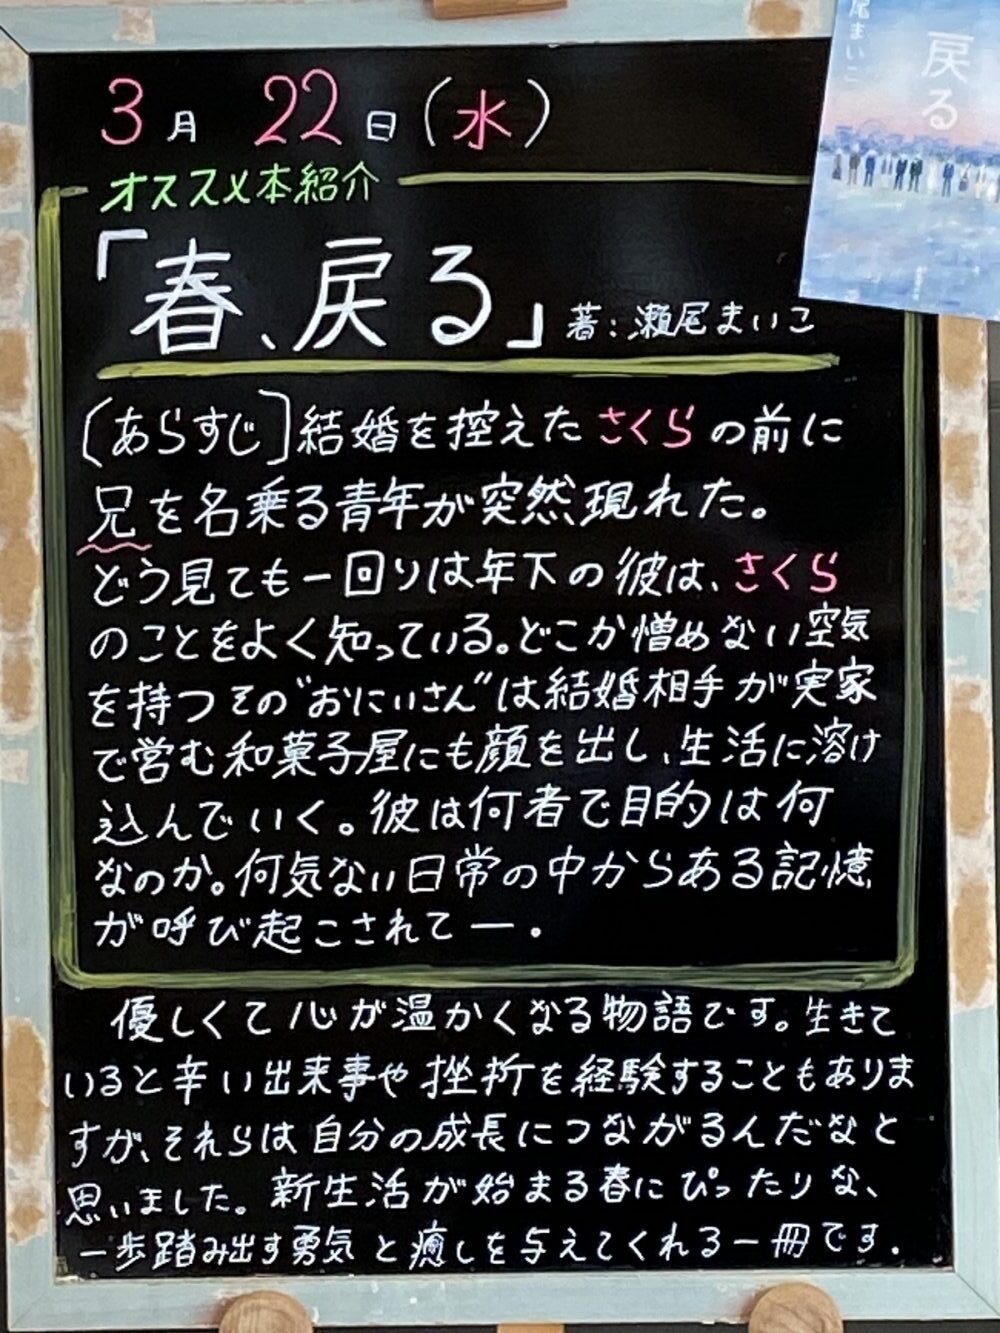 3月 22日(水)
オススメ本紹介
「春、戻る」著:瀬尾まいこ
[あらすじ]結婚を控えたさくらの前に
兄を名乗る青年が突然現れた。
どう見ても一回りは年下の彼は、さくら
のことをよく知っている。どこか憎めない空気
を持つその"おにいさん"は結婚相手が実家
で営む和菓子屋にも顔を出し、生活に溶け
込んでいく。彼は何者で目的は何
なのか。何気ない日常の中からある記憶
が呼び起こされてー.
優しくて心が温かくなる物語です。生きて
いると辛い出来事や挫折を経験することもありま
すが、それらは自分の成長につながるんだなと
思いました。新生活が始まる春にぴったりな、
一歩踏み出す勇気と癒しを与えてくれる一冊です.
尾まいこ
戻る